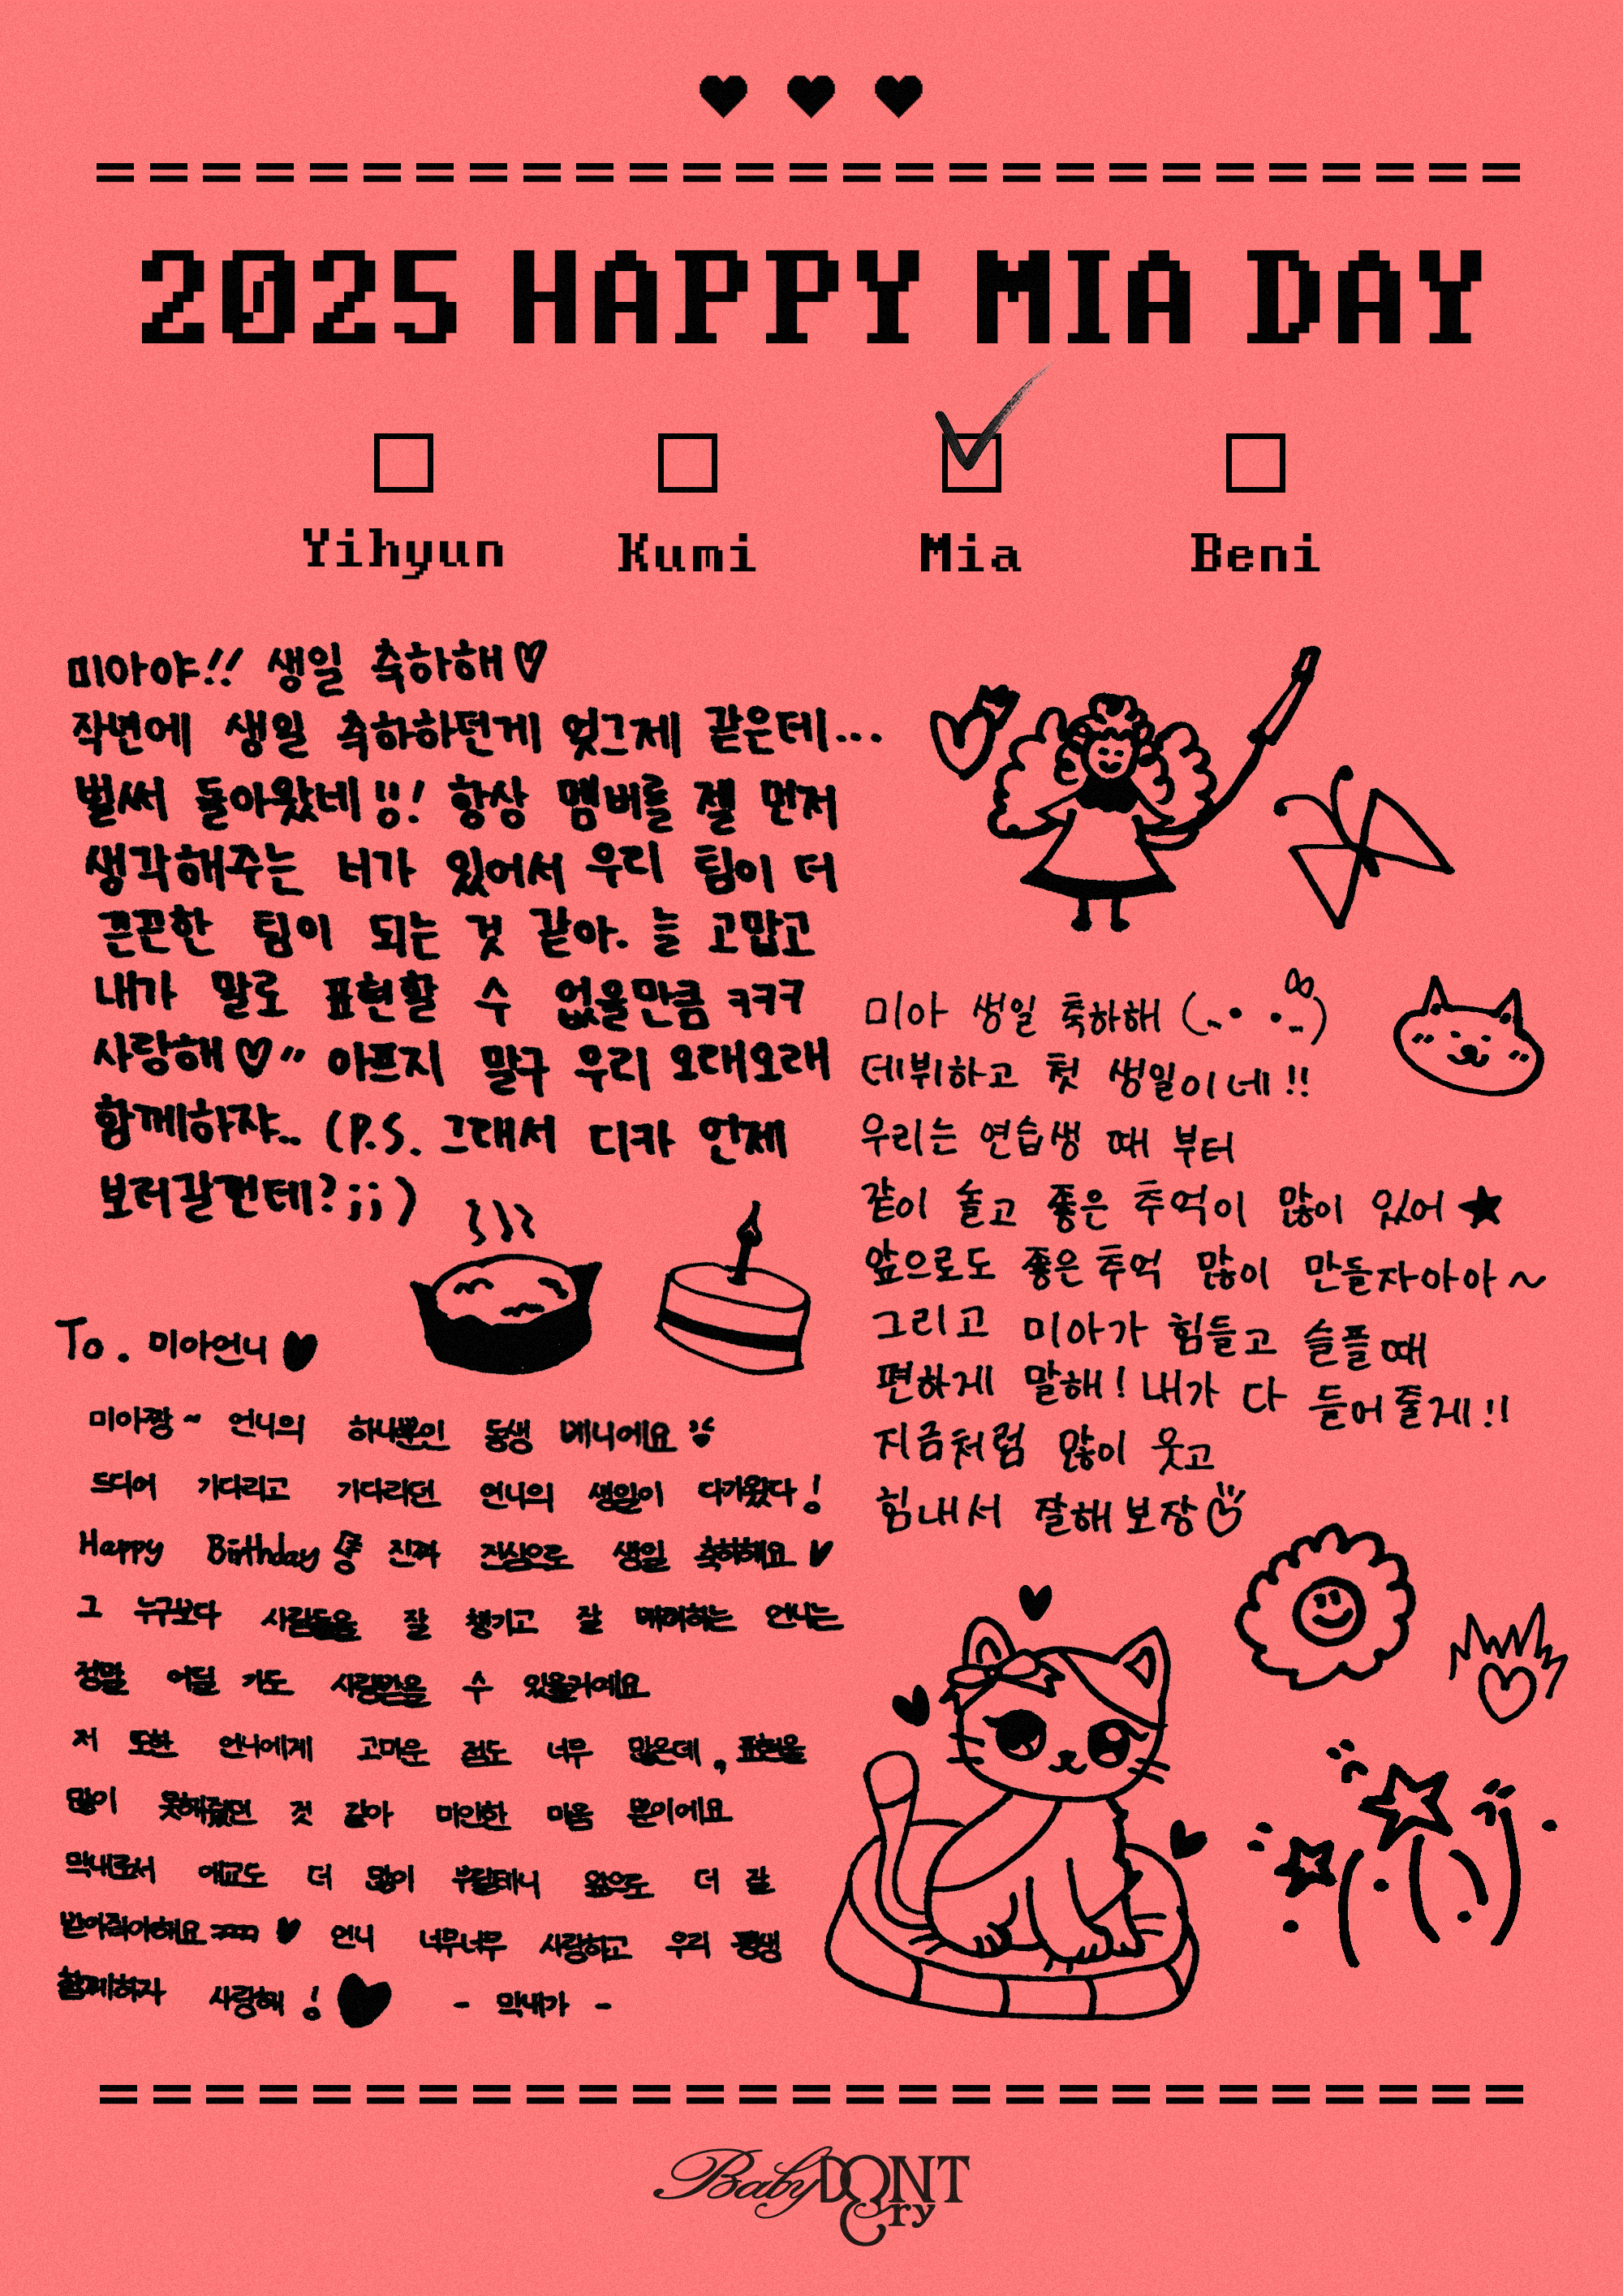 2025 HAPPY MIA DAY
Yihyun Kumi Mia Beni
미아야!! 생일 축하해♡
작년에 생일 축하하던게 엊그제 같은데...
벌써 돌아왔네!!! 항상 멤버를 젤 먼저
생각해주는 너가 있어서 우리 팀이 더
끈끈한 팀이 되는 것 같아. 늘 고맙고
내가 말로 표현할 수 없을만큼 ㅋㅋㅋ
사랑해♡" 아프지 말구 우리 오래오래
함께하쟈.. (P.S. 그래서 디카 언제
보러갈껀데?;;)
미아 생일 축하해
데뷔하고 첫 생일이네!!
우리는 연습생 때 부터
같이 놀고 좋은 추억이 많이 있어★
앞으로도 좋은 추억 많이 만들자아아~
그리고 미아가 힘들고 슬플때
편하게 말해! 내가 다 들어줄게!!
지금처럼 많이 웃고
힘내서 잘해보장
To. 미아언니♥
미아짱~ 언니의 하나뿐인 동생 베니에요
드디어 기다리고 기다리던 언니의 생일이 다가왔다!
Happy Birthday 진짜 진심으로 생일 축하해요♥
그 누구보다 사람들을 잘 챙기고 잘 배려하는 언니는
정말 어딜 가도 사랑받을 수 있을거예요
저 또한 언니에게 고마운 점도 너무 많은데, 표현을
많이 못해줬던 것 같아 미안한 마음 뿐이에요
막내로서 애교도 더 많이 부릴테니 앞으로 더 잘
받아줘야해요 ㅋㅋㅋ ♥ 언니 너무너무 사랑하고 우리 평생
함께하자 사랑해! ♥ - 막내가 -
Baby DONT Cry